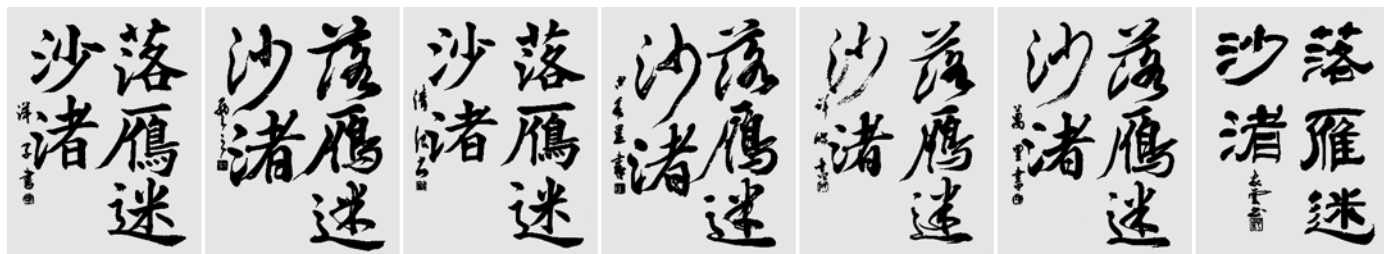 落鴈迷
沙渚
洋子書
落鴈迷
沙渚
落鴈迷
沙渚
落鴈迷
沙渚
落鴈迷
沙渚
落鴈迷
沙渚
萬里書
落雁迷
沙渚